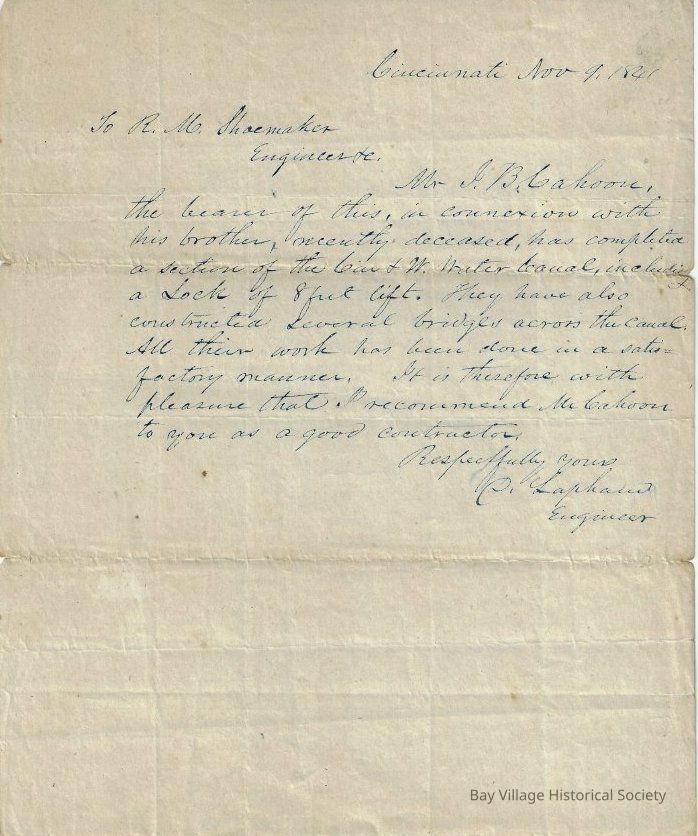 Cincinnati Nov 9, 1841
To R. M. Shoemaker
Engineer &c.
Mr J. B. Cahoon,
the bearer of this, in connexion with
his brother, recently deceased, has completed
a section of the Cin & W. Water Canal, including
a Lock of 8 feet lift. They have also
constructed several bridges across the canal.
All their work has been done in a satis=
factory manner. It is therefore with
pleasure that I recommend Mr Cahoon
to you as a good contractor.
Respectfully yours
D. Lapham
Engineer
Bay Village Historical Society